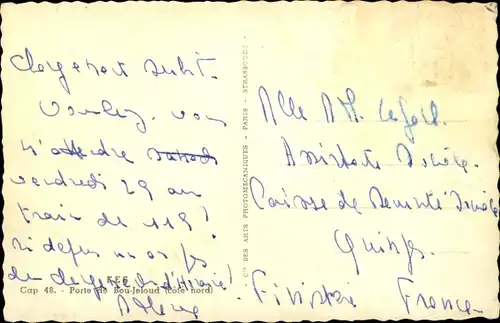 Changement subit.
Voulez-vous
m'attendre samedi
vendredi 29 au
train de 11 9 !
si depuis un
changement d'Horaire !
FES
Cap 48. - Porte de Bou-Jeloud (côté nord)
Cie DES ARTS PHOTOMECANIQUES - PARIS - STRASBOURG
Mlle M.
Assistante Sociale
Caisse de Sécurité Sociale
Quimper
Finistère France